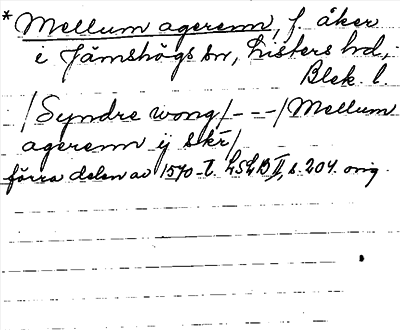 * Mellum agerenn, f. åker
i Jämshögs sn, Listers hd,
Blek. l.
/Syndre wong/ - - - /Mellum
agerenn ij skr/
förra delen av 1570-t. LSLB II, s. 204 orig.